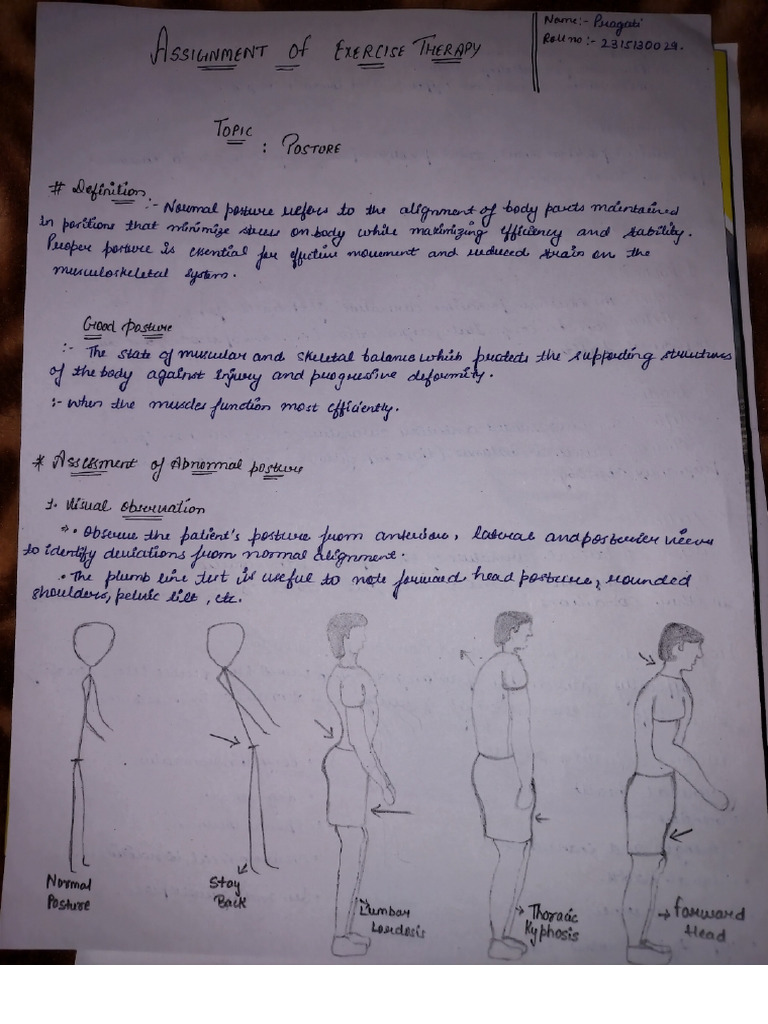 Name:- Pragati
Roll no :- 2315130029.
ASSIGNMENT Of EXERCISE THERAPY
TOPIC
: POSTURE
# Definition :- Normal posture refers to the alignment of body parts maintained
in positions that minimize stress on body while maximizing efficiency and stability.
Proper posture is essential for effective movement and reduced strain on the
musculoskeletal system.
Good posture
:- The state of muscular and skeletal balance which protects the supporting structures
of the body against injury and progressive deformity.
:- when the muscles function most efficiently.
* Assessment of Abnormal posture
1. Visual observation
⇒ • Observe the patient's posture from anterior, lateral and posterior views
to identify deviations from normal alignment.
• The plumb line test is useful to note forward head posture, rounded
shoulders, pelvic tilt, etc.
Normal
Posture
Stay
Back
Lumbar
Lordosis
Thoracic
Kyphosis
forward
Head